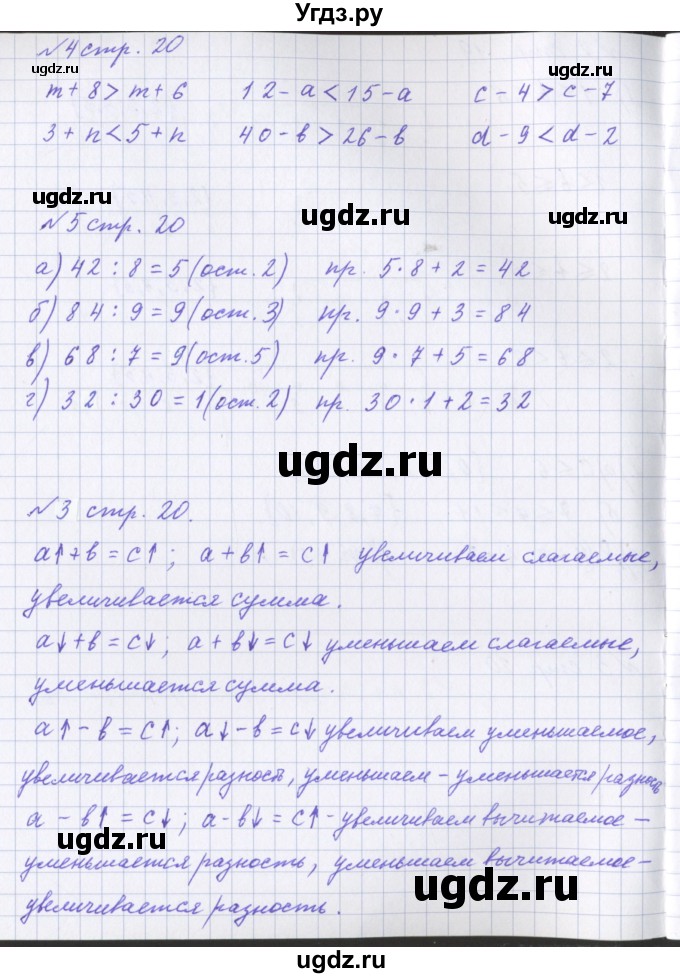 Угдз.ру
№4 стр. 20
ugdz.ru ugdz.ru ugdz.ru
m + 8 > m + 6 12 - a < 15 - a c - 4 > c - 7
3 + n < 5 + n 40 - в > 26 - в d - 9 < d - 2
ugdz.ru ugdz.ru ugdz.ru
№5 стр. 20
а) 42 : 8 = 5 (ост. 2) пр. 5 · 8 + 2 = 42
б) 84 : 9 = 9 (ост. 3) пр. 9 · 9 + 3 = 84
в) 68 : 7 = 9 (ост. 5) пр. 9 · 7 + 5 = 68
г) 32 : 30 = 1 (ост. 2) пр. 30 · 1 + 2 = 32
ugdz.ru
№3 стр. 20.
a↑ + в = c↑ ; a + в↑ = c↑ увеличиваем слагаемые,
увеличивается сумма.
a↓ + в = c↓ ; a + в↓ = c↓ уменьшаем слагаемые,
уменьшается сумма.
a↑ - в = c↑ ; a↓ - в = c↓ увеличиваем уменьшаемое,
увеличивается разност, уменьшаем - уменьшается разность
a - в↑ = c↓ ; a - в↓ = c↑ - увеличиваем вычитаемое -
ugdz.ru
уменьшается разность, уменьшаем вычитаемое -
ugdz.ru
увеличивается разность.
ugdz.ru ugdz.ru ugdz.ru